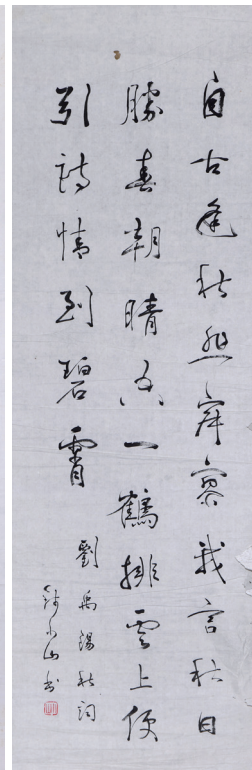 自古逢秋悲寂寥我言秋日
勝春朝晴空一鶴排雲上便
引詩情到碧霄
劉禹錫秋詞
錢小山书